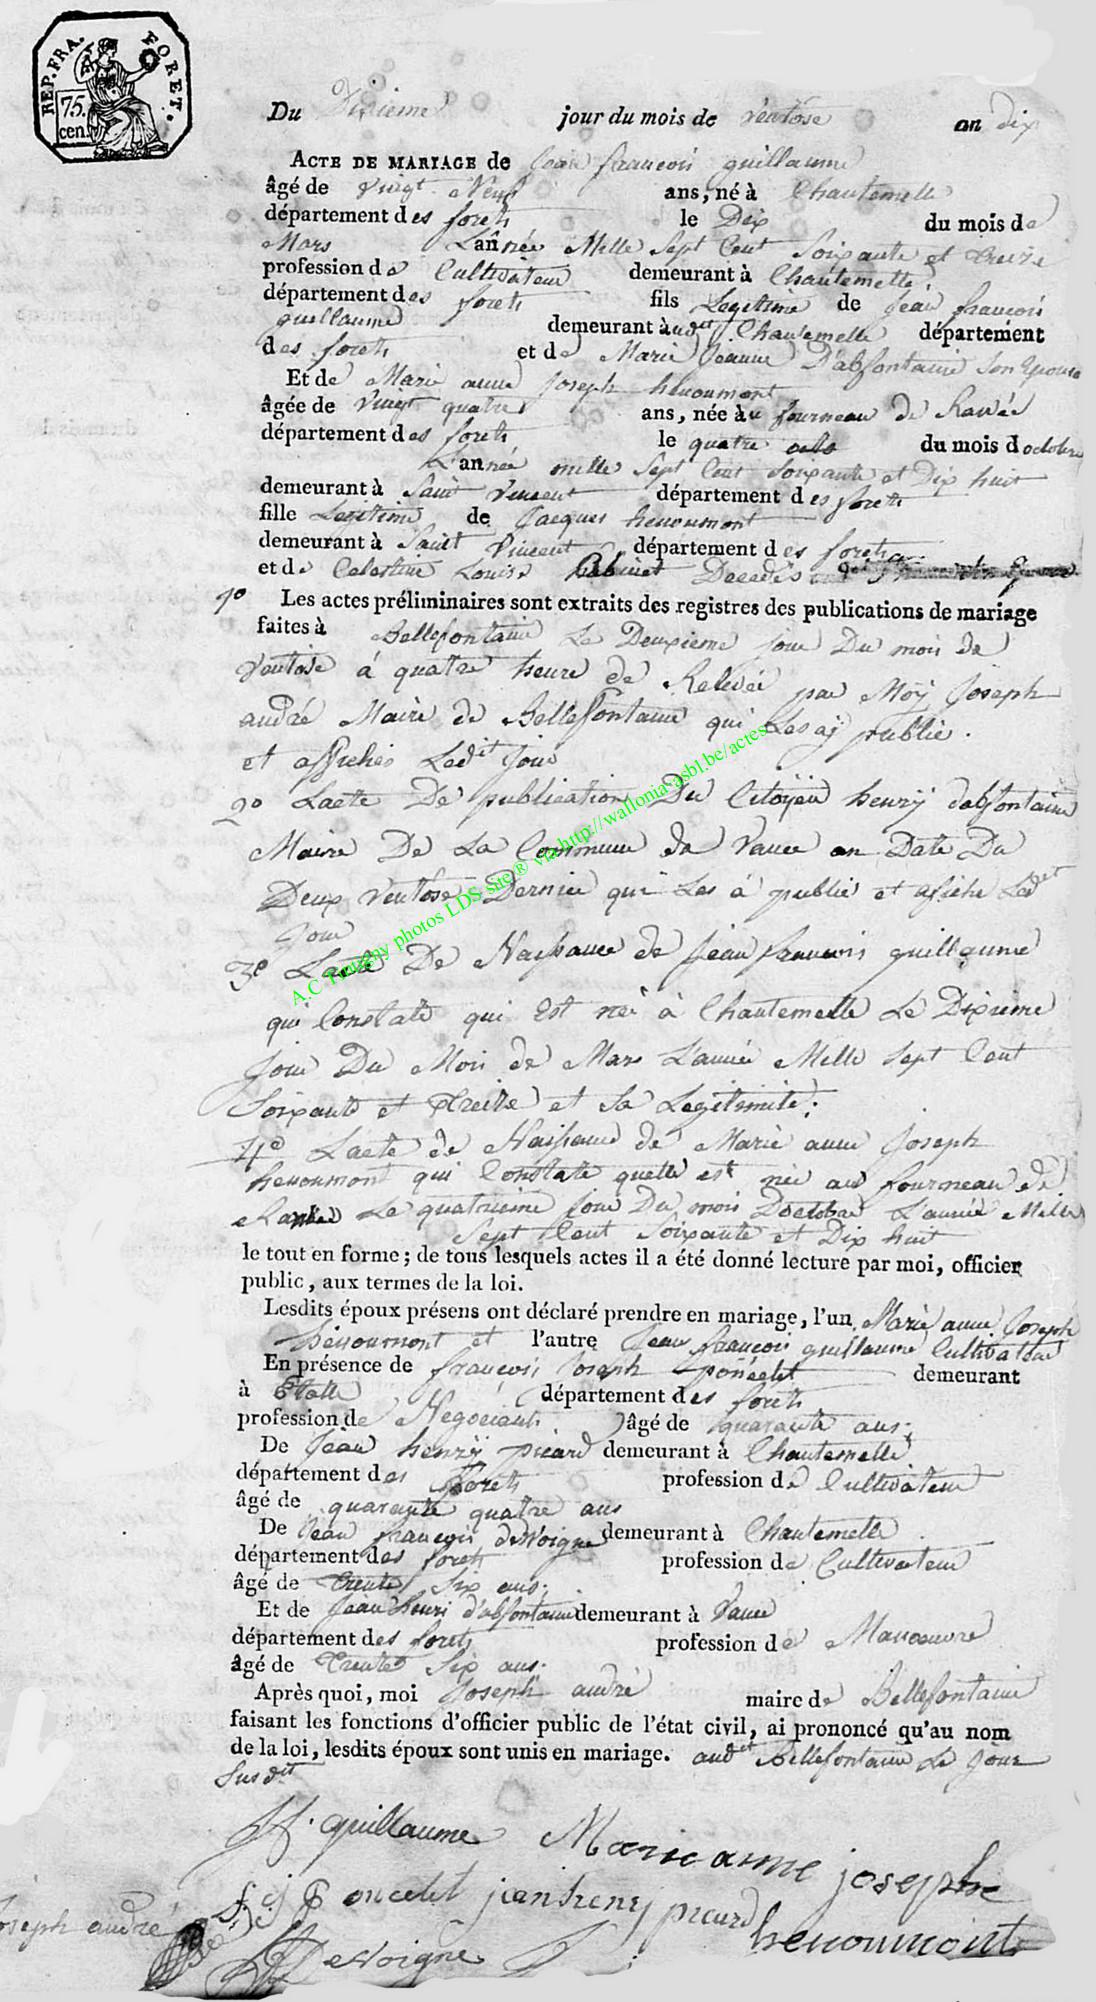 REP. FRA. FORET.
75. cen.
Du Dixieme jour du mois de ventôse an dix
ACTE DE MARIAGE de Jean françois guillaume
âgé de vingt Neuf ans, né à Chantemelle
département des forets le Dix du mois de
Mars L'année Mille Sept Cent Soixante et Treize
profession de Cultivateur demeurant à Chantemelle
département des forets fils Legitime de Jean françois
guillaume demeurant audit Chantemelle département
des forets et de Marie Jeanne D'absontaine Son Epouse
Et de Marie anne Joseph henoumont
âgée de vingt quatre ans, née au fourneau de Rawée
département des forets le quatre du mois doctobre
L'année mille Sept Cent Soixante et Dix huit
demeurant à Saint Vincent département des forets
fille Legitime de Jacques henoumont
demeurant à Saint Vincent département des forets
et de Celestine Louise Decedés
1° Les actes préliminaires sont extraits des registres des publications de mariage
faites à Bellefontaine Le Deuxieme jour Du mois de
Ventose à quatre heure de Relevée par Moÿ Joseph
andré Maire de Bellefontaine qui Les aÿ publié.
et affichés Ledit Jour
2° Lacte De publication Du Citoÿen henrÿ dabsontaine
Maire De La Commune de Vance en Date Du
Deux Ventôse Dernier qui Les à publié et afiché Ledit
Jour
3° Lacte De Naissance de Jean françois guillaume
qui Constate qui Est né à Chantemelle Le Dixieme
Jour Du Mois de Mars L'année Mille Sept Cent
Soixante et Treize et Sa Legitimité;
4° Lacte de Naissance de Marie anne Joseph
henoumont qui Constate quelle est née au fourneau de
Le quatrieme Jour Du mois Doctobre L'année Mille
Sept Cent Soixante et Dix huit
le tout en forme; de tous lesquels actes il a été donné lecture par moi, officier
public, aux termes de la loi.
Lesdits époux présens ont déclaré prendre en mariage, l'un Marie anne Joseph
henoumont et l'autre Jean françois guillaume Cultivateur
En présence de françois Joseph poncelet demeurant
à Etalle département des forets
profession de Negociant âgé de quarante ans;
De Jean henrÿ picard demeurant à Chantemelle
département des forets profession de Cultivateur
âgé de quarante quatre ans
De Jean françois deWoigne demeurant à Chantemelle
département des forets profession de Cultivateur
âgé de Trente Six ans;
Et de Jean henri d'absontaine demeurant à Vance
département des forets profession de Manoeuvre
âgé de Trente Six ans.
Après quoi, moi Joseph andré maire de Bellefontaine
faisant les fonctions d'officier public de l'état civil, ai prononcé qu'au nom
de la loi, lesdits époux sont unis en mariage. audit Bellefontaine Le Jour
Susdit
guillaume Marie anne josephe
f j Poncelet jean henrÿ picard henoumont
Joseph andré DeWoigne
A.C Tintigny photos LDS site ® via http://wallonia-asbl.be/actes